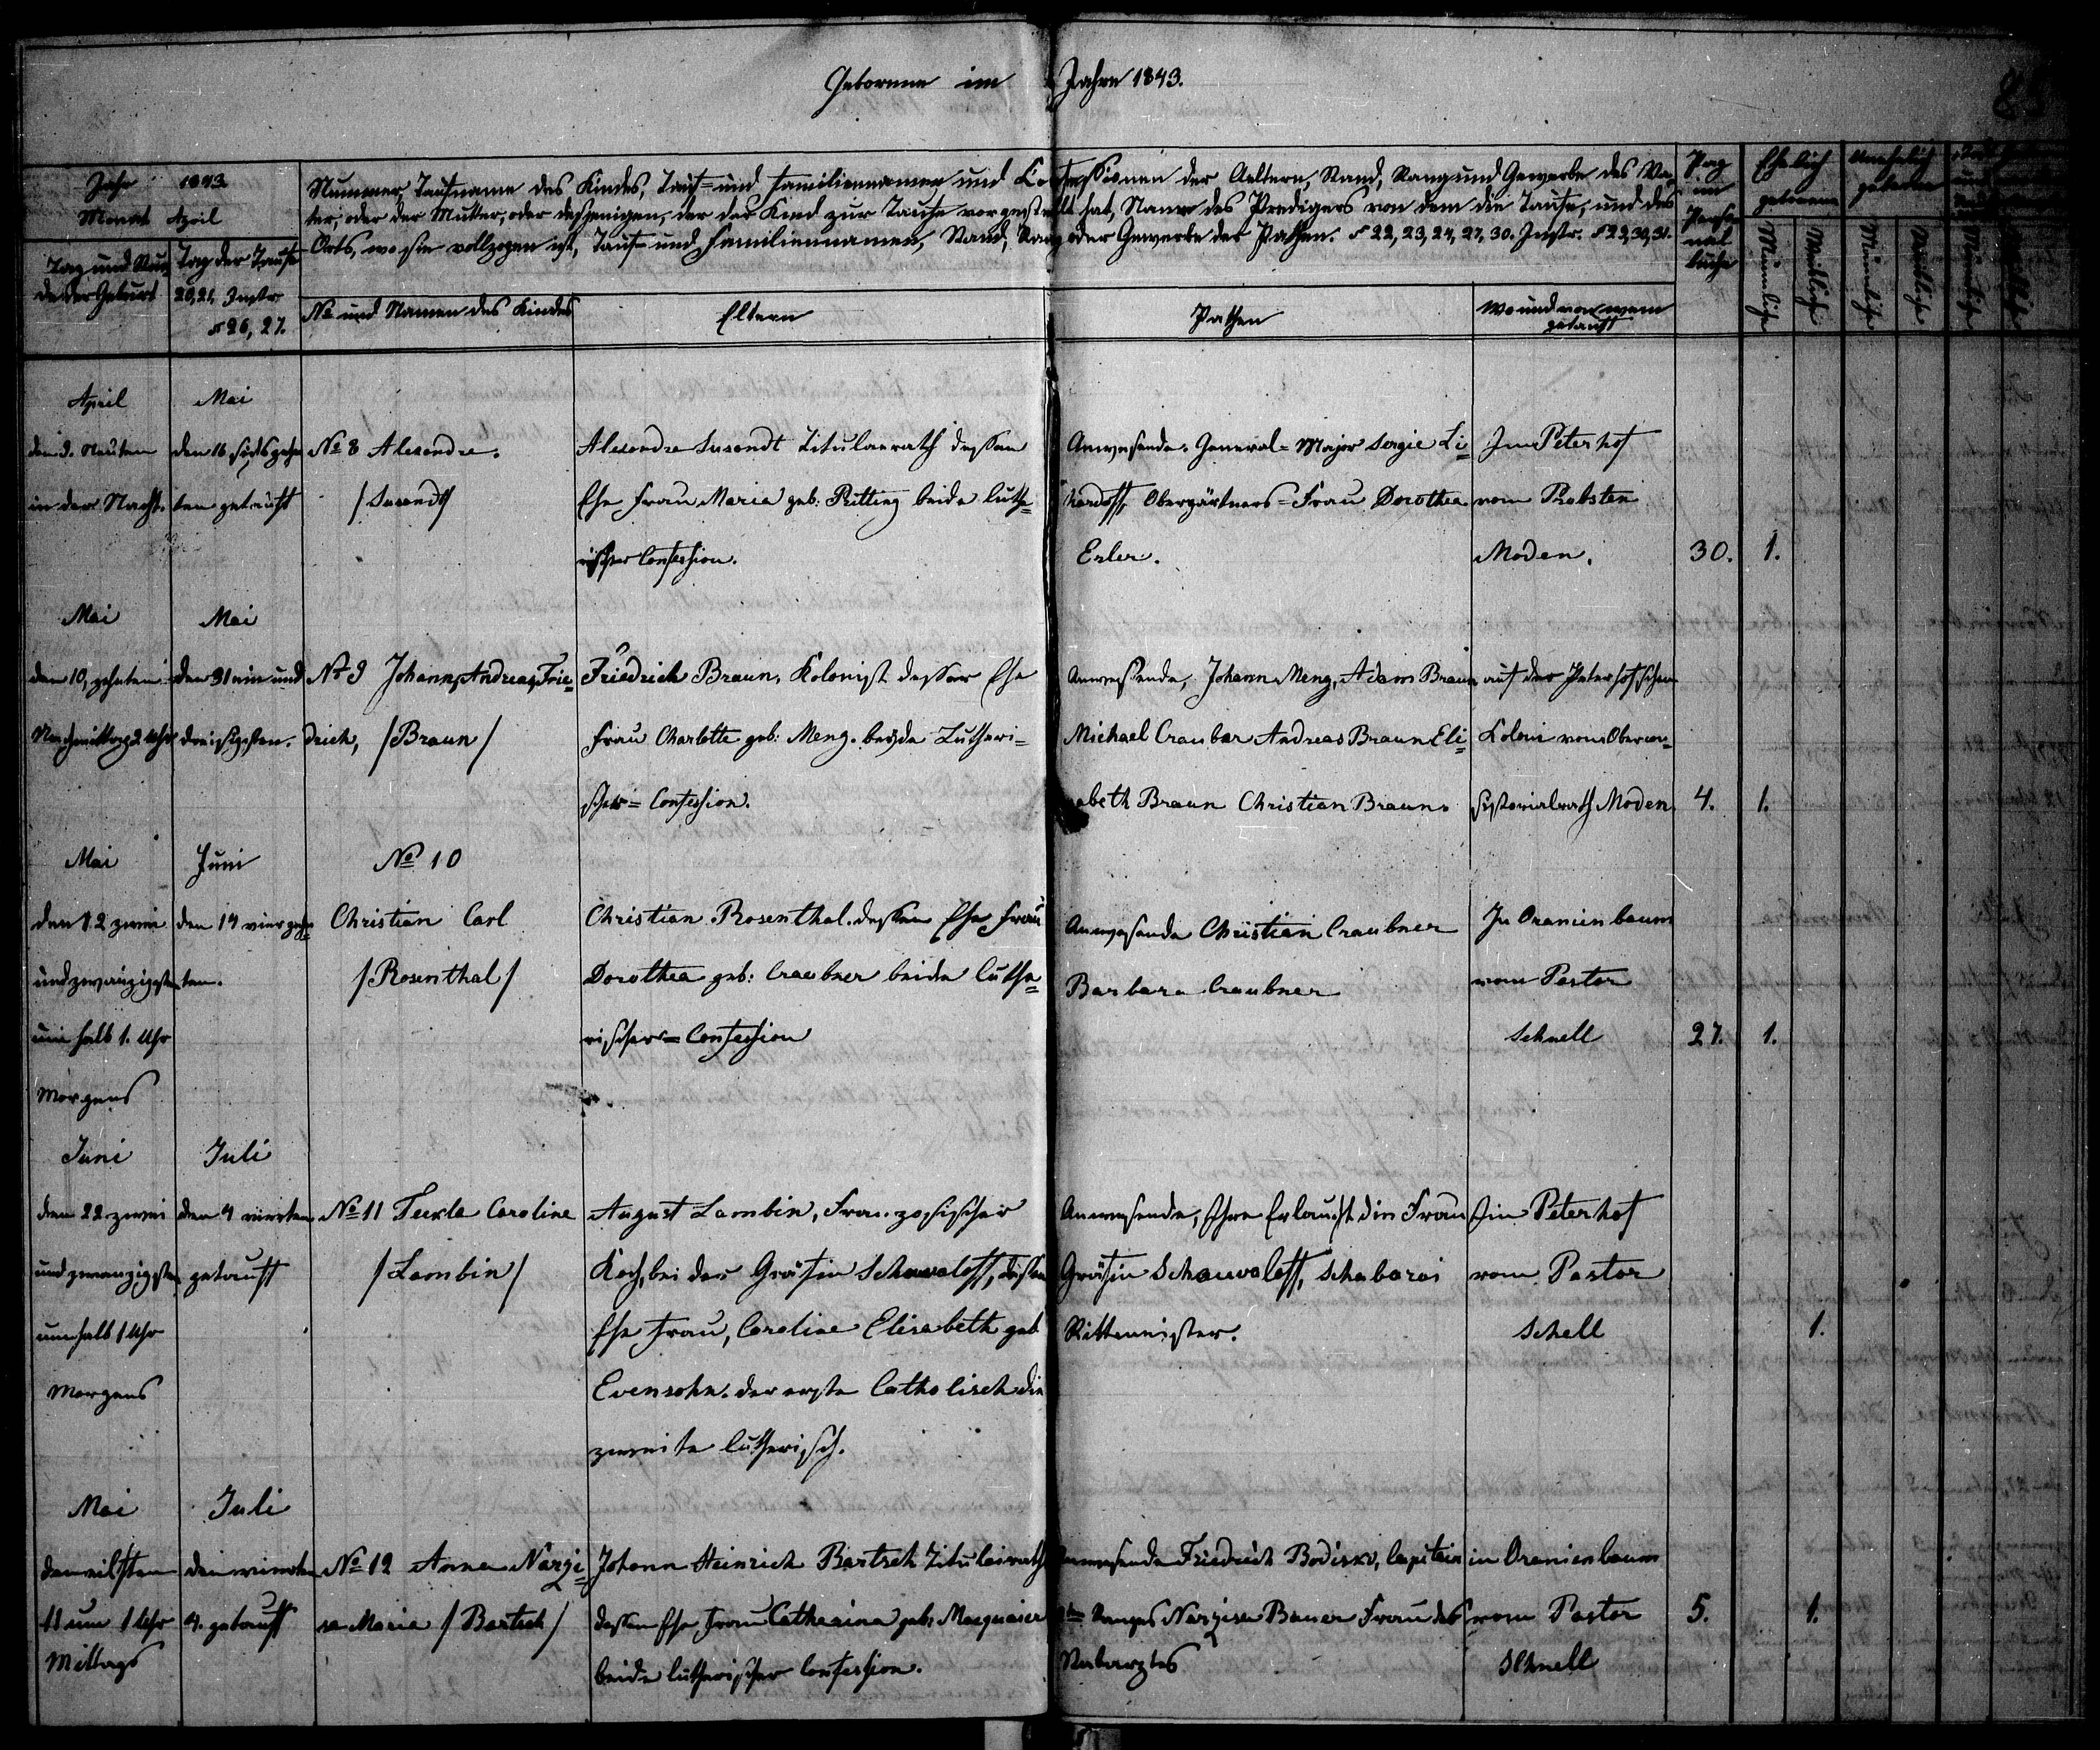 Geborene im Jahre 1843.
Jahr 1843
Monat April
Tag und Stunde der Geburt
Tag der Taufe 20, 21, Instr. § 26, 27.
Nummer Taufname des Kindes, Tauf- und Familiennamen und Confessionen der Aeltern, Stand, Rang und Gewerbe des Va-
ter, oder der Mutter, oder desjenigen, der das Kind zur Taufe vorgestellt hat, Name des Predigers von dem die Taufe, und des
Orts, wo sie vollzogen ist, Tauf- und Familiennamen, Stand, Rang oder Gewerbe der Pathen. § 22, 23, 24, 27, 30. Instr. § 29, 30, 31.
№ und Namen des Kindes
Eltern
Pathen
Wo und von wem
getauft
Pag
im
Perso-
nal
buche
Ehelich
geborene
Unehelich
geborene
Männliche
Weibliche
Männliche
Weibliche
Männliche
April
den 9. Neunten
in der Nacht.
Mai
den 16 sechszehn
ten getauft
№ 8 Alexandre.
/Susandt/
Alexandre Susandt Titulairath dessen
Ehe Frau Maria geb. Rutting beide luthe=
rischer Confession.
Anwesende. General=Major Sergie Li=
chardoff, Obergärtners=Frau Dorothea
Erler.
Im Peterhof
vom Probsten
Moden.
30. 1.
Mai
den 10, zehnten
Nachmittag 2 Uhr
Mai
den 31 ein und
dreißigsten.
№ 9 Johann, Andreas, Frie=
drich, /Braun/
Friedrich Braun, Kolonist dessen Ehe
Frau Charlotte geb: Meng. beyde Lutheri=
scher=Confession.
Anwesende, Johann Meng, Adam Braun
Michael Craubar Andreas Braun Eli=
sabeth Braun Christian Braun.
auf der Peterhofschen
Koloni vom Obercon=
sistorialrath Moden.
4. 1.
Mai
den 22 zwei
und zwanzigsten
um halb 1. Uhr
Morgens
Juni
den 14 vierzehn=
ten.
№ 10
Christian Carl
/Rosenthal/
Christian Rosenthal. dessen Ehe Frau
Dorothea geb: Craubner beide luthe=
rischer=Confession
Anwesende Christian Craubner
Barbara Craubner
In Oranienbaum
vom Pastor
Schnell
27. 1.
Juni
den 22 zwei
und zwanzigsten
um halb 1 Uhr
Morgens
Juli
den 4 vierten
getauft
№ 11 Teckle Caroline
/Lambin/
August Lambin, Französischer
Koch, bei der Gräfin Schauwaloff, dessen
Ehe Frau, Caroline Elisabeth geb
Evensohn. der erste Catholisch die
zweite lutherisch.
Anwesende, Ihre Erlaucht die Frau
Gräfin Schauvaloff, Schabarai
Rittmeister.
in Peterhof
vom Pastor
Schell
1.
Mai
den eilften
11 um 1 Uhr
Mittags
Juli
den vierten
4. getauft
№ 12 Anna Nargi=
sa Maria /Bartsch/
Johann Heinrich Bartsch Titulairath
dessen Ehe Frau Catharina geb: Maquaier
beide lutherischer Confession.
Anwesende Friedrich Bodisko, Capitein
Ranges Nargisa Bauer Frau des
Stabarztes
in Oranienbaum
vom Pastor
Schnell
5. 1.